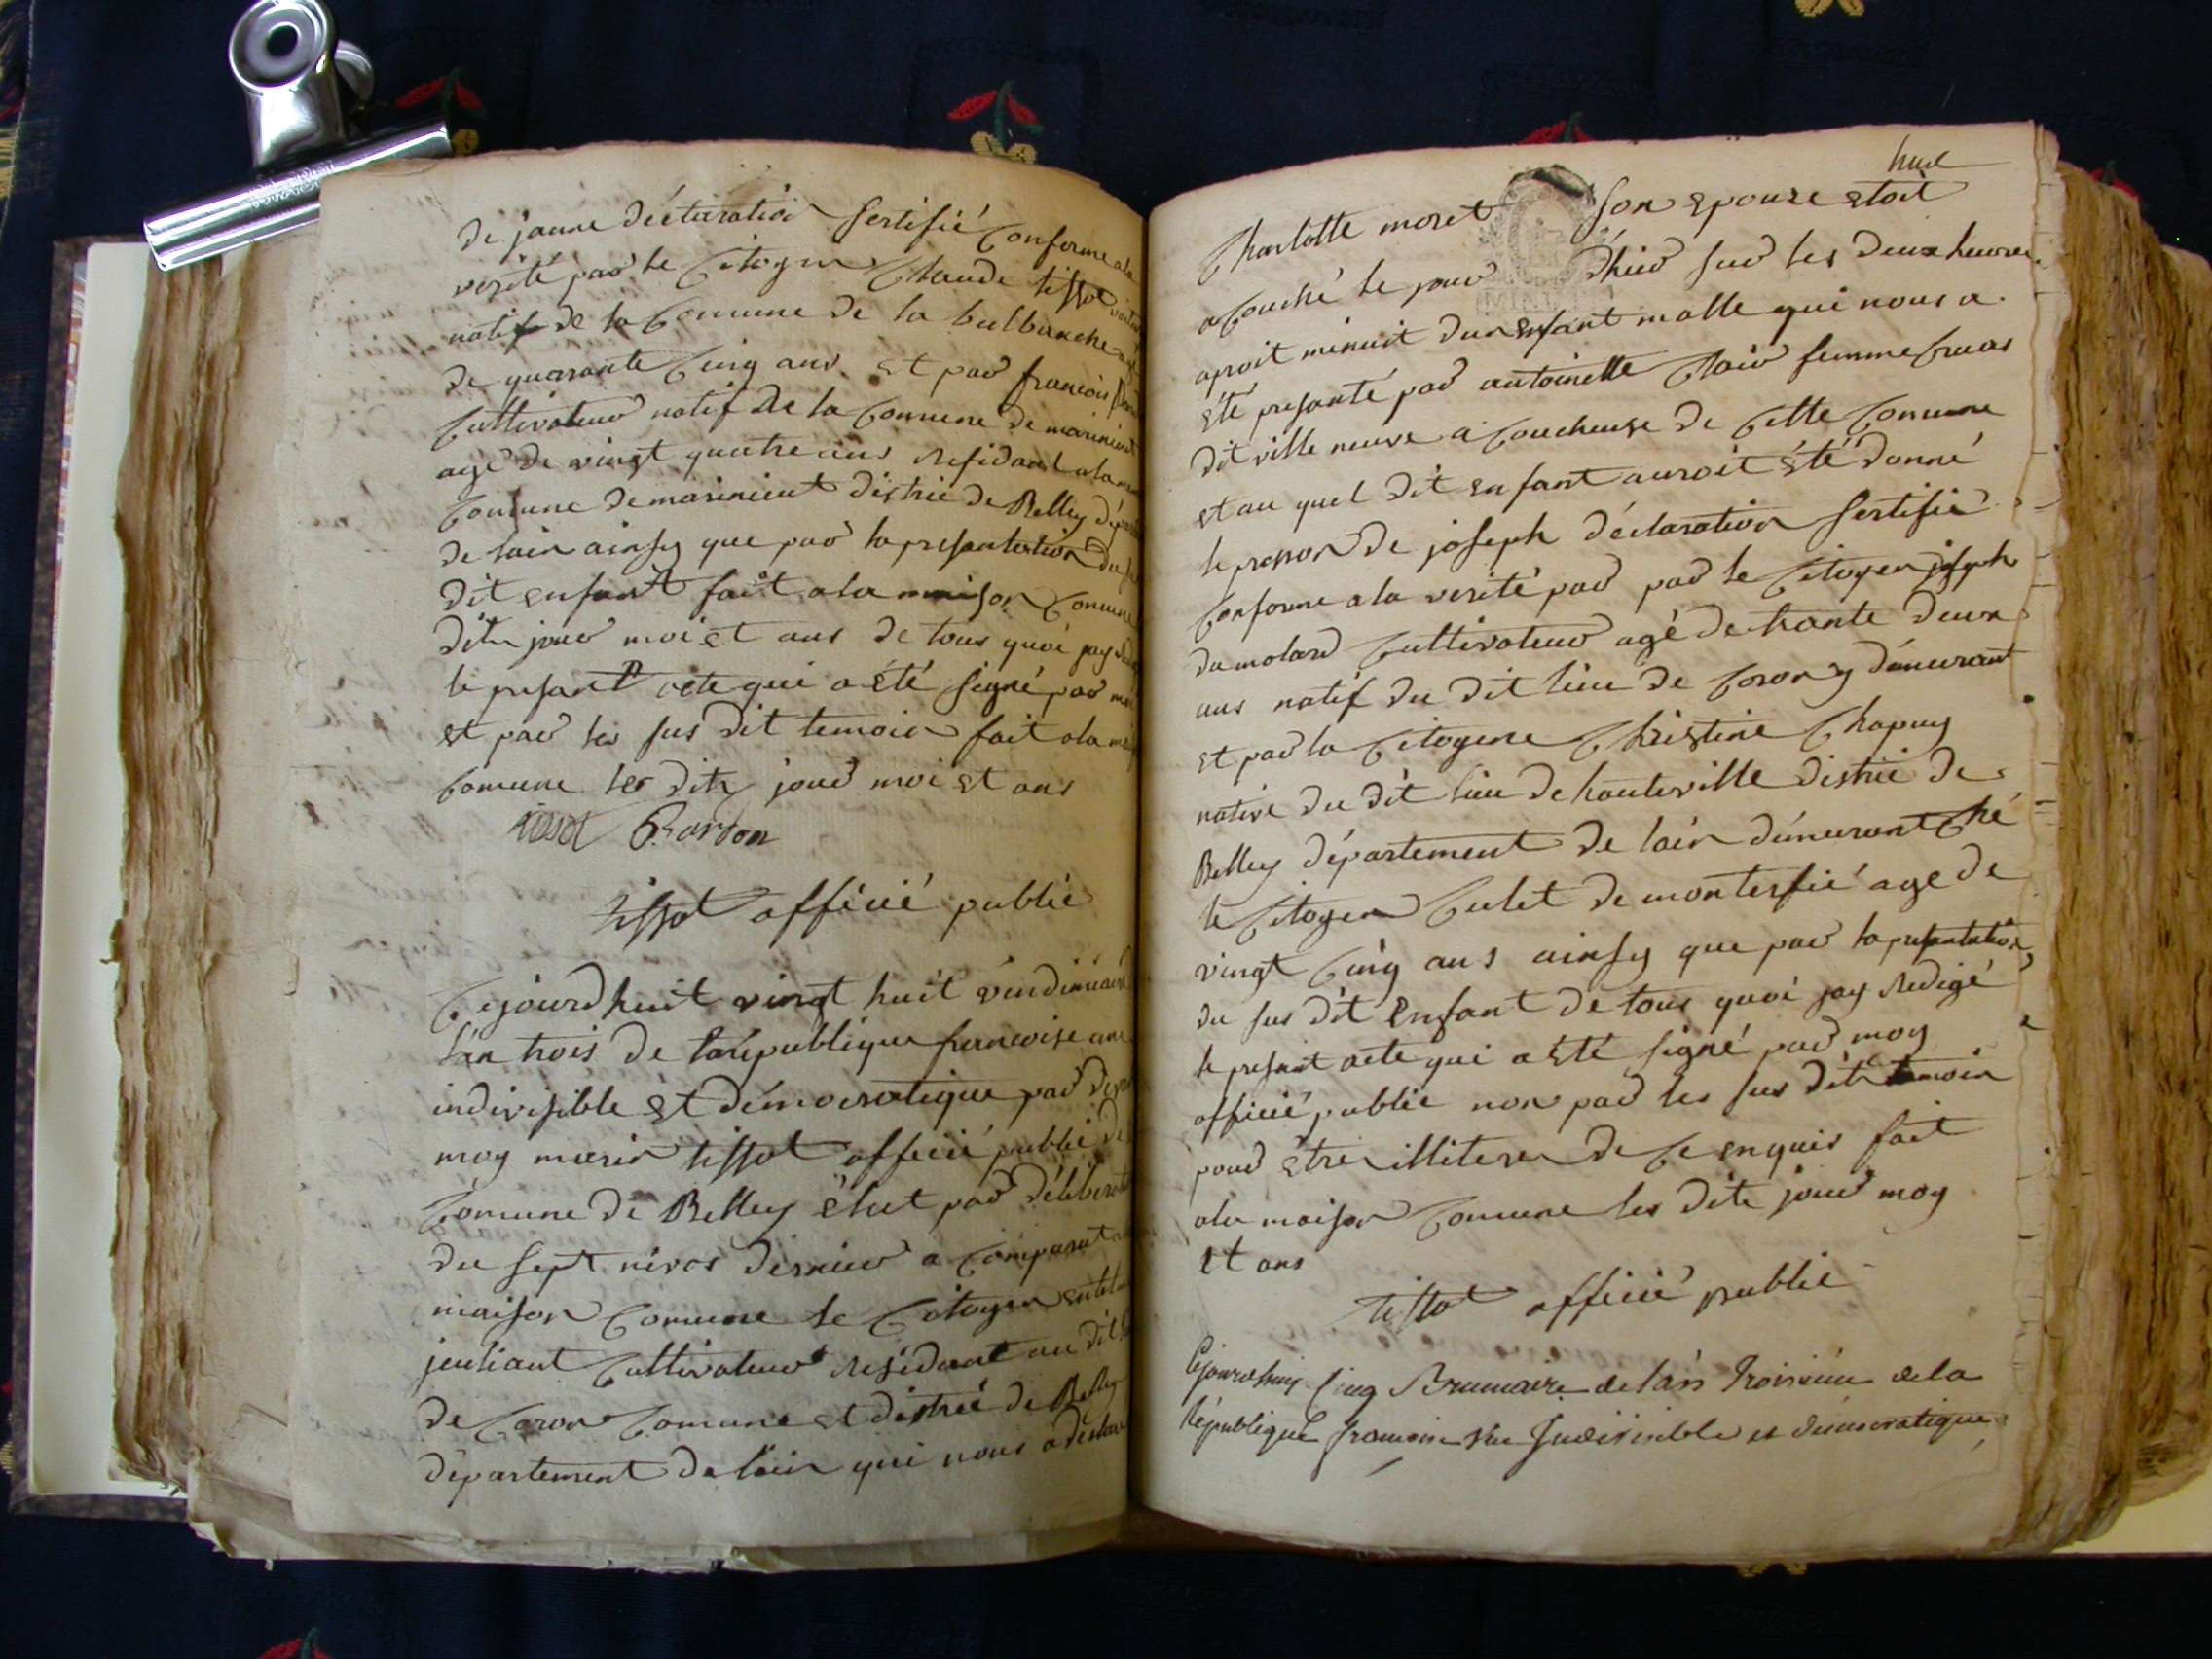 de jeanne déclaration sertifié conforme a la
verité par le citoyen claude tissot
natif de la comune de la bulbanche
de quarante cinq ans et par francois
cultivateur natif de la comune de marinieut
agé de vingt quatre ans residant a la
comune de marinieut distric de Belley
de lain ainsy que par la presentation du
dit enfant fait a la maison comune
dits jour moi et ans de tous quoi jay
le presant acte qui a été signé par moi
et par les sus dit temoin fait a la
comune les dits jour moi et ans
tissot
tissot officié publie
Cejourdhuit vingt huit vendimiaire
l'an trois de la république francoise une
indivisible et démocratique par
moy marin tissot officié publié de
comune de Belley élut par déliberat
du sept nivos dernier a comparut a
maison comune le citoyen
jentiant cultivateur residant au dit
de coron comune et distric de Belley
département de lain qui nous a déclaré
huit
Charlotte moret son epouze etoit
acouché le jour dhier sur les deux heures
aproit minuit dun enfant malle qui nous a
été presanté par antoinette clair femme
dit ville neuve acoucheuse de cette comune
et au quel dit enfant auroit été donné
le prenon de joseph déclaration sertifié
conforme a la verité par par le citoyen joseph
dumolard cultivateur agé de trante deux
ans natif du dit lieu de coron y démeurant
et par la citoyene christine chapuy
native du dit lieu de hauteville distric de
Belley département de lain démeurant ché
le citoyen culet de montarfié age de
vingt cinq ans ainsy que par la presantation
du sus dit enfant de tous quoi jay redigé
le presant acte qui a été signé par moy
officié publie non par les sus dits temoin
pour être illitere de ce enquis fait
a la maison comune les dits jour moy
et ans
tissot officié publie
Cejourdhuy cinq Brumaire de l'an troisième de la
République francoise une Indivisible et démocratique